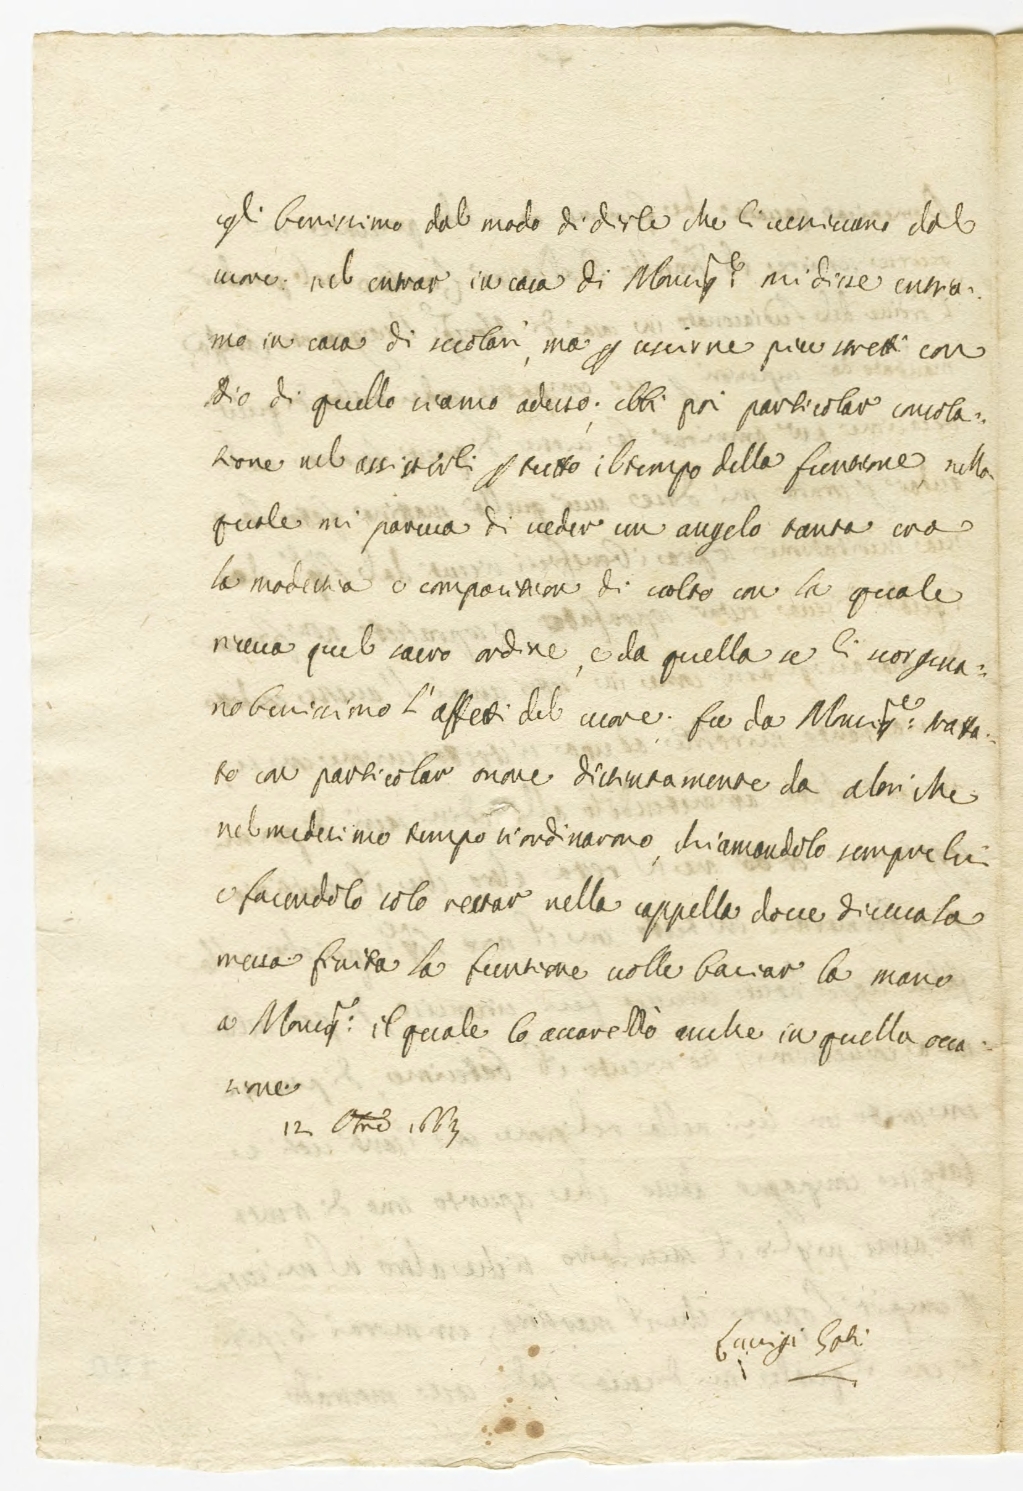 egli benissimo dal modo di dirle che li uenissano dal
cuore. nel entrar in casa di Monsig.re mi disse entria:
mo in casa di secolari, ma p uscirne piu stretti con
Dio di quello siamo adesso; ebbi poi particolar consola:
tione nel assisterli p tutto il tempo della funtione, nella
quale mi pareua di ueder un angelo tanta era
la modestia e composition di uolto con la quale
riceua quel sacro ordine, e da quella se li scorgeua:
no benissimo l'affetti del cuore. fu da Monsig.re: tratta:
to con particolar onore distintamente da altri che
nel medesimo tempo si ordinarono, chiamandolo sempre lui
e facendolo solo restar nella cappella doue diceua la
messa finita la funtione uolle baciar la mano
a Monsig.re: il quale lo accarezzò anche in quella occa:
sione
12 1663
Luuigi